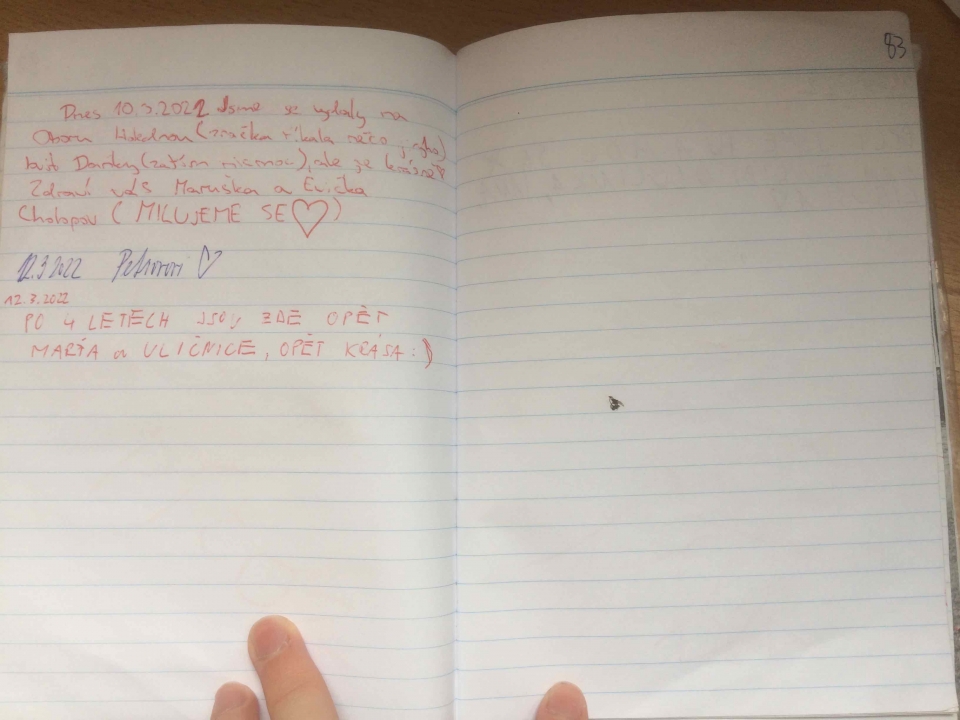 83
Dnes 10.3.2022 Jsme se vydaly na
(značka říkala něco
(zatím nic moc), ale je krásně
Zdraví vás Maruška a Evička
(MILUJEME SE♡)
12.3.2022 Petrovi ♡
12.3.2022
PO 4 LETECH JSOU ZDE OPĚT
MARŤA a ULIČNICE, OPĚT KRÁSA :)